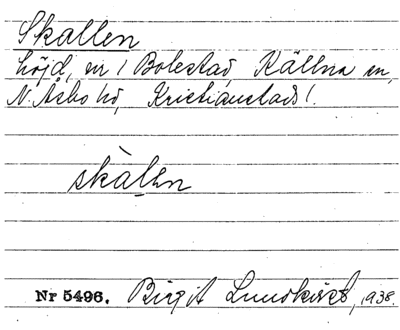 Skallen
höjd, m / Bolestad, Källna sn,
N. Åsbo hd, Kristianstads l.
skàlen
Nr 5496. Birgit Lundkvist, 1938.